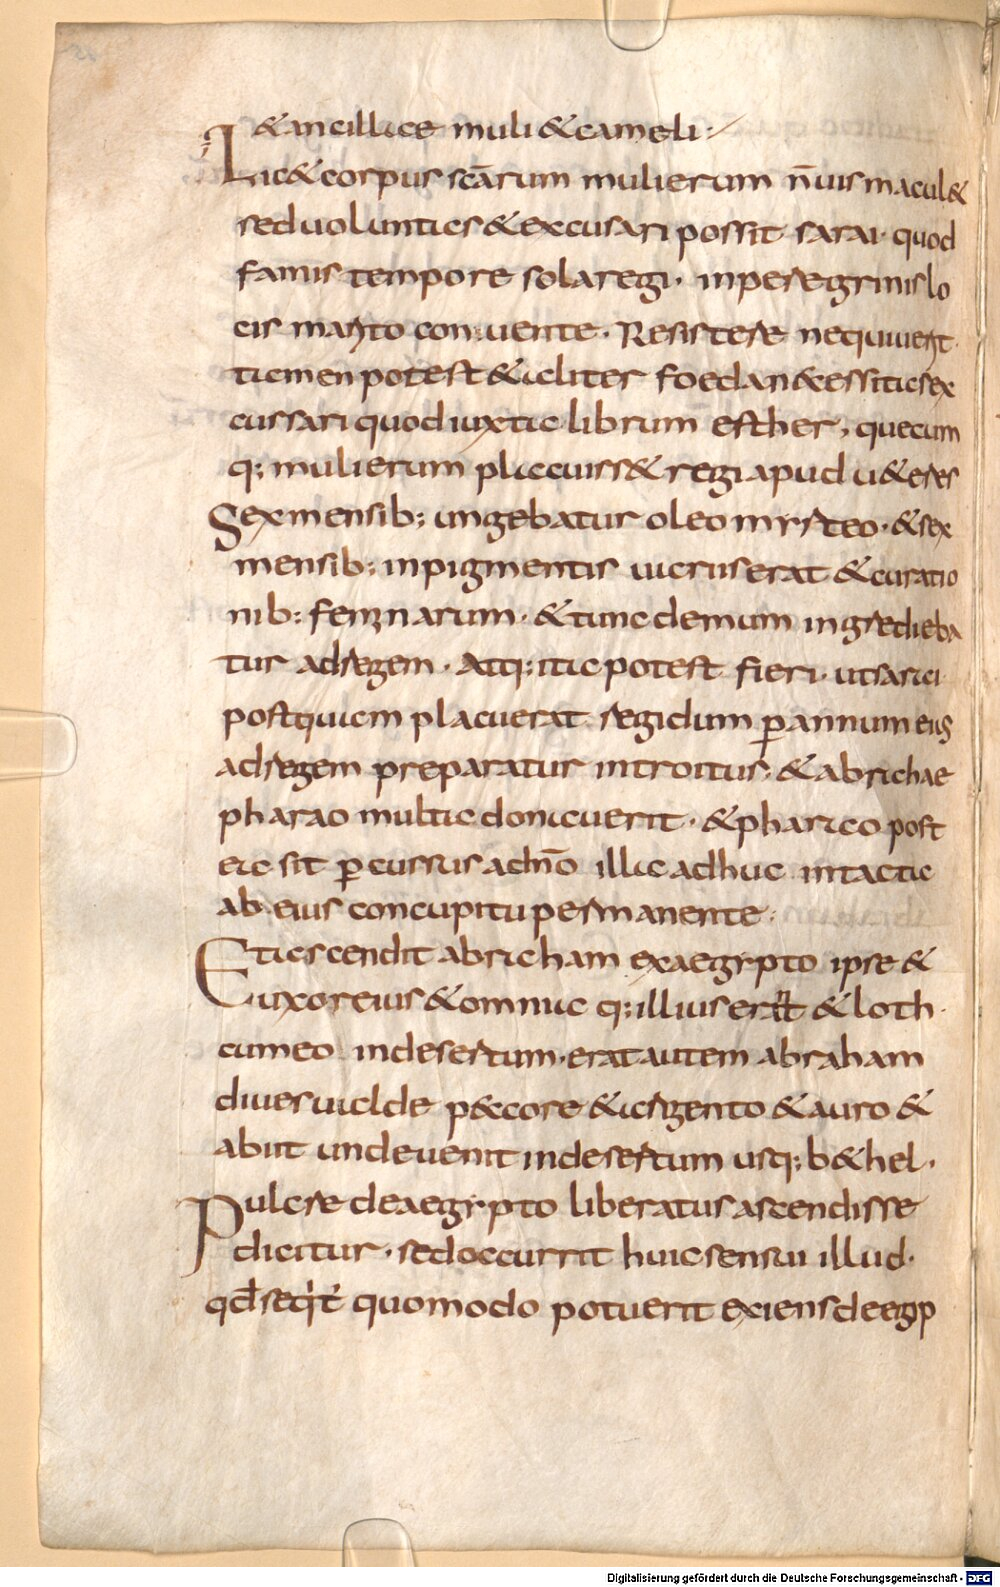 & ancillae muli & cameli:
Lic& corpus scārum mulierum n̄ uis macul&
sed uoluntas & excusari possit sarai· quod
famis tempore sola regi· in peregrinis lo
cis marito conuente· Resistere nequiuerit
tamen potest & aliter foeda necessitas ex
cussari quod iuxta librum esther, quecum
q; mulierum placuiss& regi apud u&eres
Sex mensib; ungebatur oleo myrteo· & sex
mensib; in pigmentis uariis erat & curatio
nib; feminarum· & tunc demum ingredieba
tur ad regem· Atq; ita potest fieri· ut sarai
postquam placuerat regi dum p annum eius
ad regem preparatur introitus· & abrahae
pharao multa donauerit· & pharao post
ea sit p cussus a dn̄o illa adhuc intacta
ab eius concupitu permanente:
Et ascendit abraham ex aegypto ipse &
uxor eius & omnia q; illius erat & loth·
cum eo in desertum· erat autem abraham
diues ualde p&core & argento & auro &
abiit unde uenit in desertum usq; b&hel·
Pulcre de aegypto liberatus ascendisse
dicitur· sed occurrit huic sensui illud·
qd seqt̄ quomodo potuerit exiens de egip
Digitalisierung gefördert durch die Deutsche Forschungsgemeinschaft - DFG